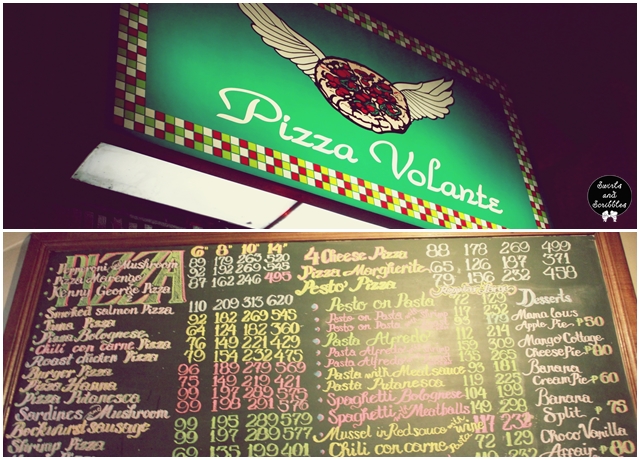 Pizza Volante
Swirls
and
Scribbles
PIZZA
6" 8" 10" 14"
Peperoni & Mushroom 92 179 263 520
92 192 269 545
Kenny George Pizza 87 162 246 495
Smoked salmon Pizza 110 209 313 620
Tuna Pizza 92 182 269 545
Pizza Bolognese 64 124 182 360
Chili con carne Pizza 76 149 221 429
Roast chicken Pizza 79 154 232 475
Burger Pizza 96 189 279 569
Pizza Hanna 75 149 219 421
Pizza Putanesca 99 199 289 561
Sardines & Mushroom 99 197 291 576
Bockwurst sausage 99 195 289 579
Shrimp Pizza 99 197 289 577
69 135 199 401
4 Cheese Pizza 88 178 269 499
Pizza Margherita 65 126 197 371
Pesto Pizza 79 156 232 458
Pesto on Pasta 72 129
Pasta Alfredo
Pasta with Meat sauce 93
Pasta Putanesca 119
Spaghetti Bolognese 104
Spaghetti & Meatballs
Mussel in Red sauce with wine 117 232
Chili con carne pasta 72 129
Desserts
Mama Lous
Apple Pie ₱50
Mango Cottage
Cheese Pie ₱80
Banana
Cream Pie ₱60
Banana
Split ₱ 75
Choco Vanilla
Affair ₱ 80